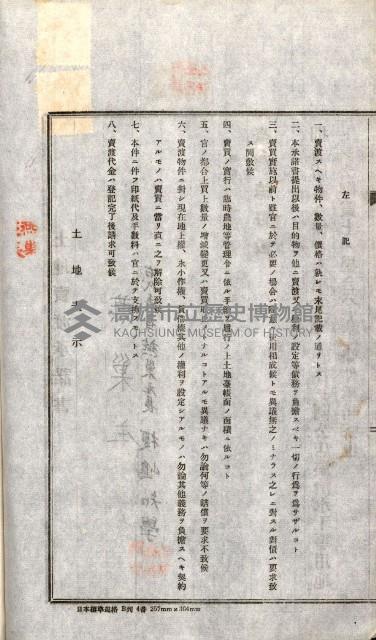 左記
一、賣渡スヘキ物件、數量、價格ハ孰レモ末尾記載ノ通リトス
二、本承諾書提出以後ハ目的物ヲ他ニ賣渡又ハ 權利ノ設定等債務ヲ負擔スベキ一切ノ行爲ヲ爲サザルコト
三、賣買實施以前ト雖官ニ於テ必要ノ場合ハ 使用相成候トモ異議無之ノミナラス之レニ對スル對價ハ要求致
ス間敷候
四、賣買ノ實行ハ臨時農地等管理令ニ依ル手 履行ノ上土地臺帳面ノ面積ニ依ルコト
五、官ノ都合上買上數量ノ增減變更又ハ賣買 トナルコトアルモ異議ナキハ勿論何等ノ賠償ヲ要求不致候
六、賣渡物件ニ對シ現在地上權、永小作權、 其他ノ權利ヲ設定シアルモノハ勿論其他義務ヲ負擔スヘキ契約
アルモノハ賣買ニ當リ直ニ之ヲ解除可致
七、本件ニ件フ印紙代及手數料ハ官ニ於テ支 トス
八、賣渡代金ハ登記完了後請求可致候
土地 示
高雄市立歷史博物館
KAOHSIUNG MUSEUM OF HISTORY
日本標準規格 B列4番 257mm×364mm